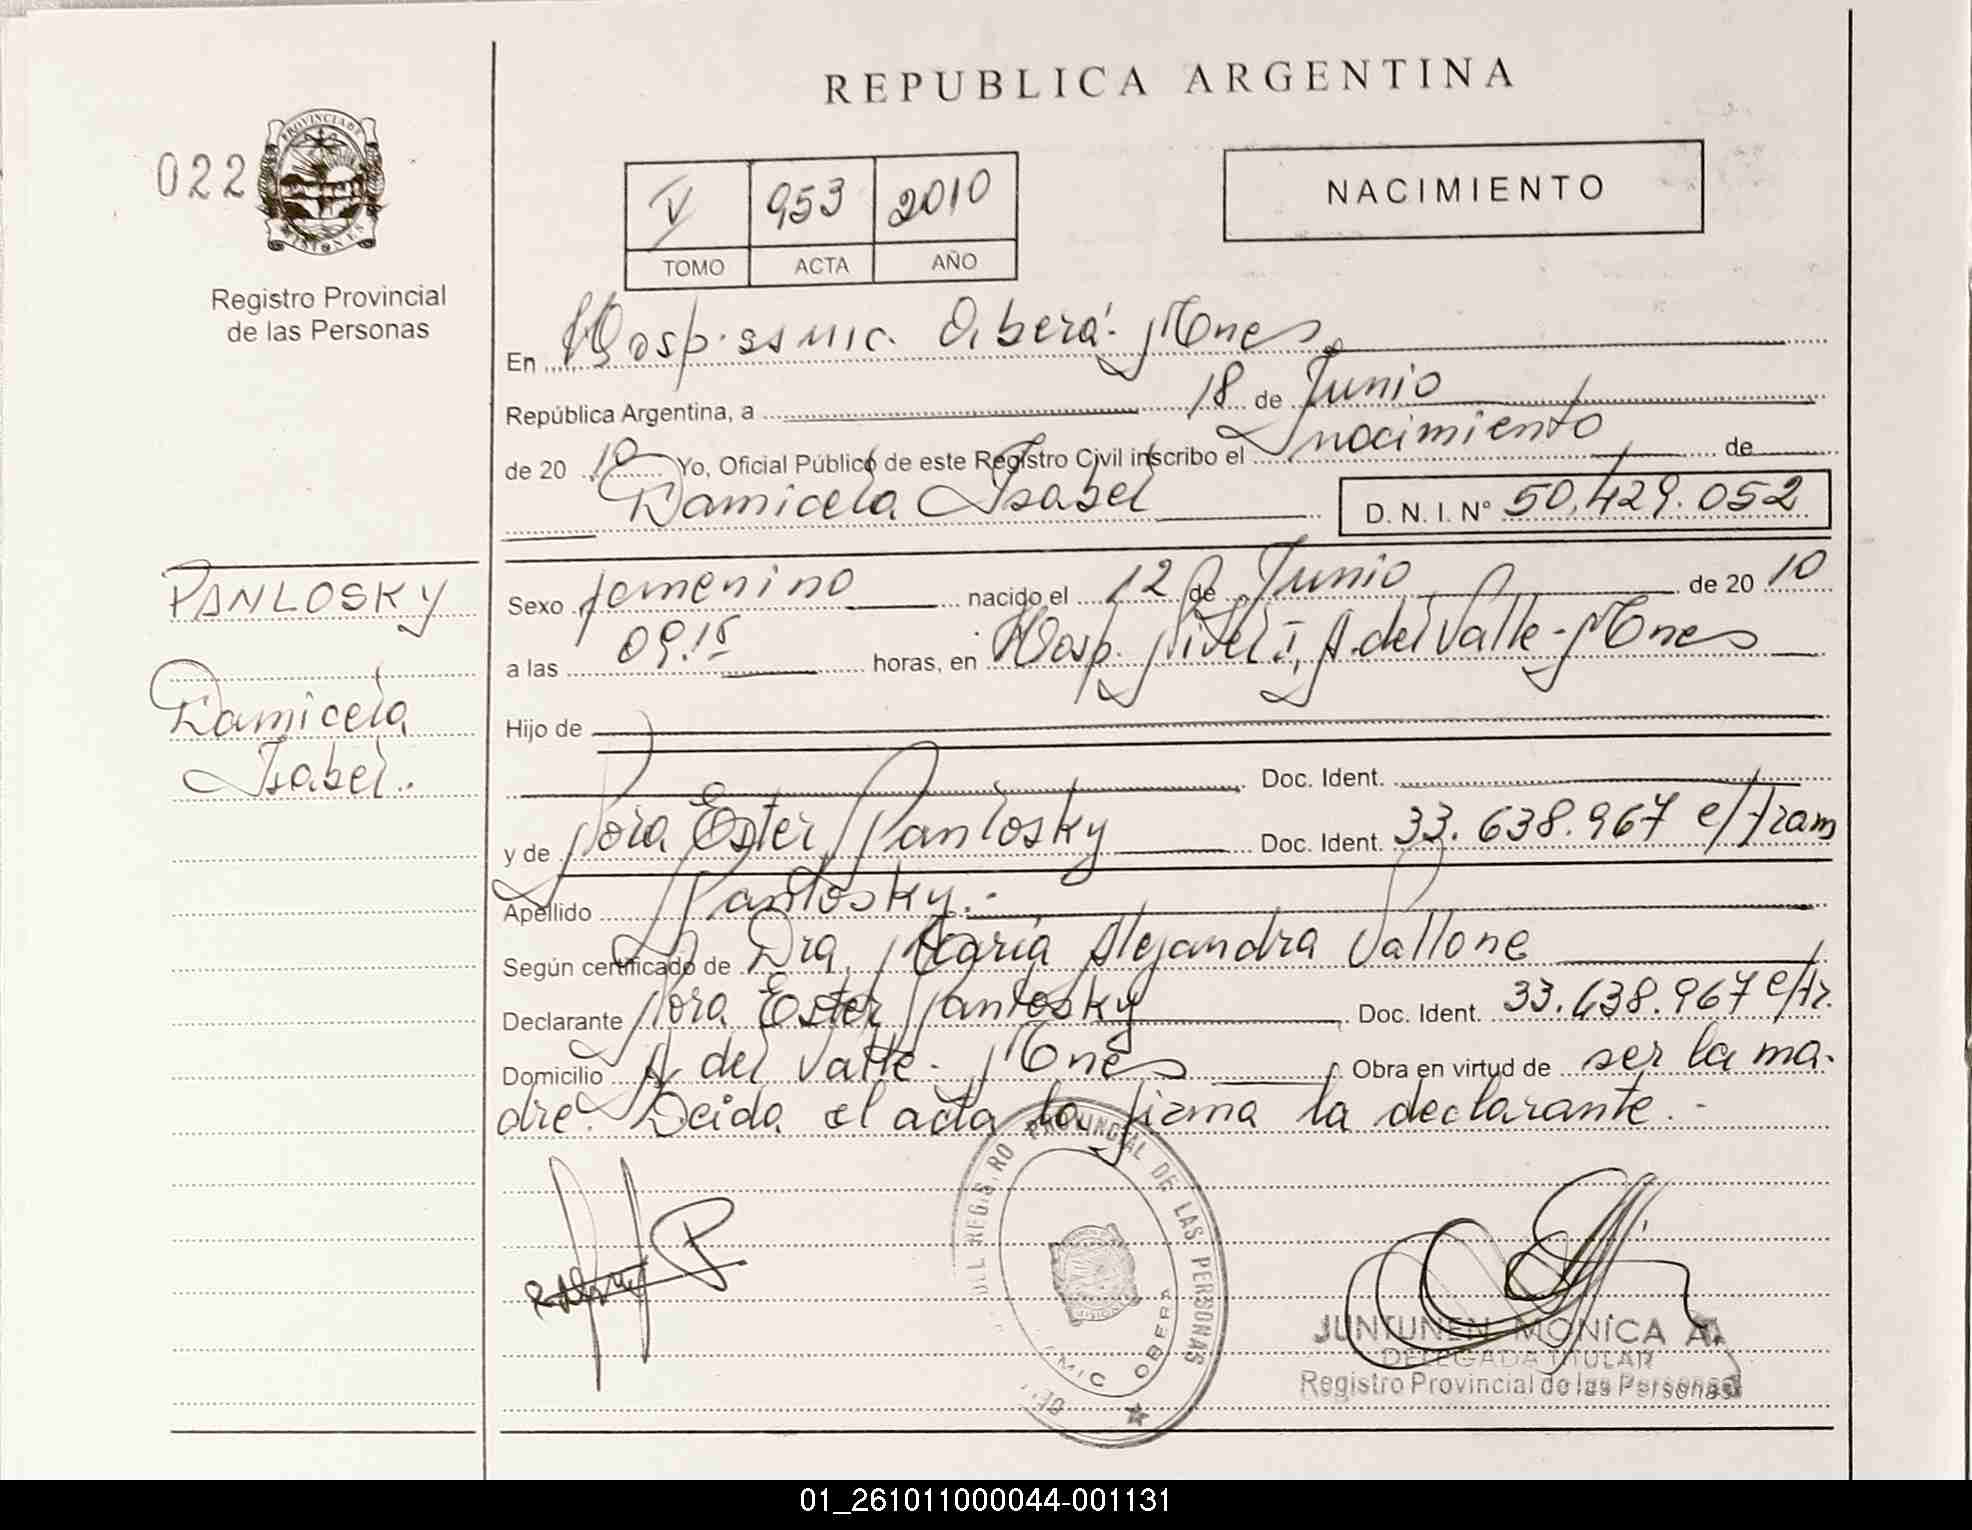 REPUBLICA ARGENTINA
022
PROVINCIA DE
MISIONES
Registro Provincial
de las Personas
V 953 2010
TOMO ACTA AÑO
NACIMIENTO
En Hosp. SSMIC. Oberá - Mnes
República Argentina, a 18 de Junio
de 20 10 Yo, Oficial Público de este Registro Civil inscribo el nacimiento de
Damicela Isabel D. N. I. N° 50.429.052
PANLOSKY
Damicela
Isabel.
Sexo femenino nacido el 12 de Junio de 20 10
a las 09.15 horas, en Hosp. Nivel I, A. del Valle - Mnes
Hijo de
Doc. Ident.
y de Nora Ester Panlosky Doc. Ident. 33.638.967 e/tram
Apellido Panlosky.-
Según certificado de Dra. María Alejandra Vallone
Declarante Nora Ester Panlosky Doc. Ident. 33.638.967 e/tr.
Domicilio A. del Valle - Mnes Obra en virtud de ser la ma-
dre. Leida el acta la firma la declarante.-
REGISTRO PROVINCIAL DE LAS PERSONAS
OBERA
JUNTUNEN MONICA A.
DELEGADA TITULAR
Registro Provincial de las Personas
01_261011000044-001131